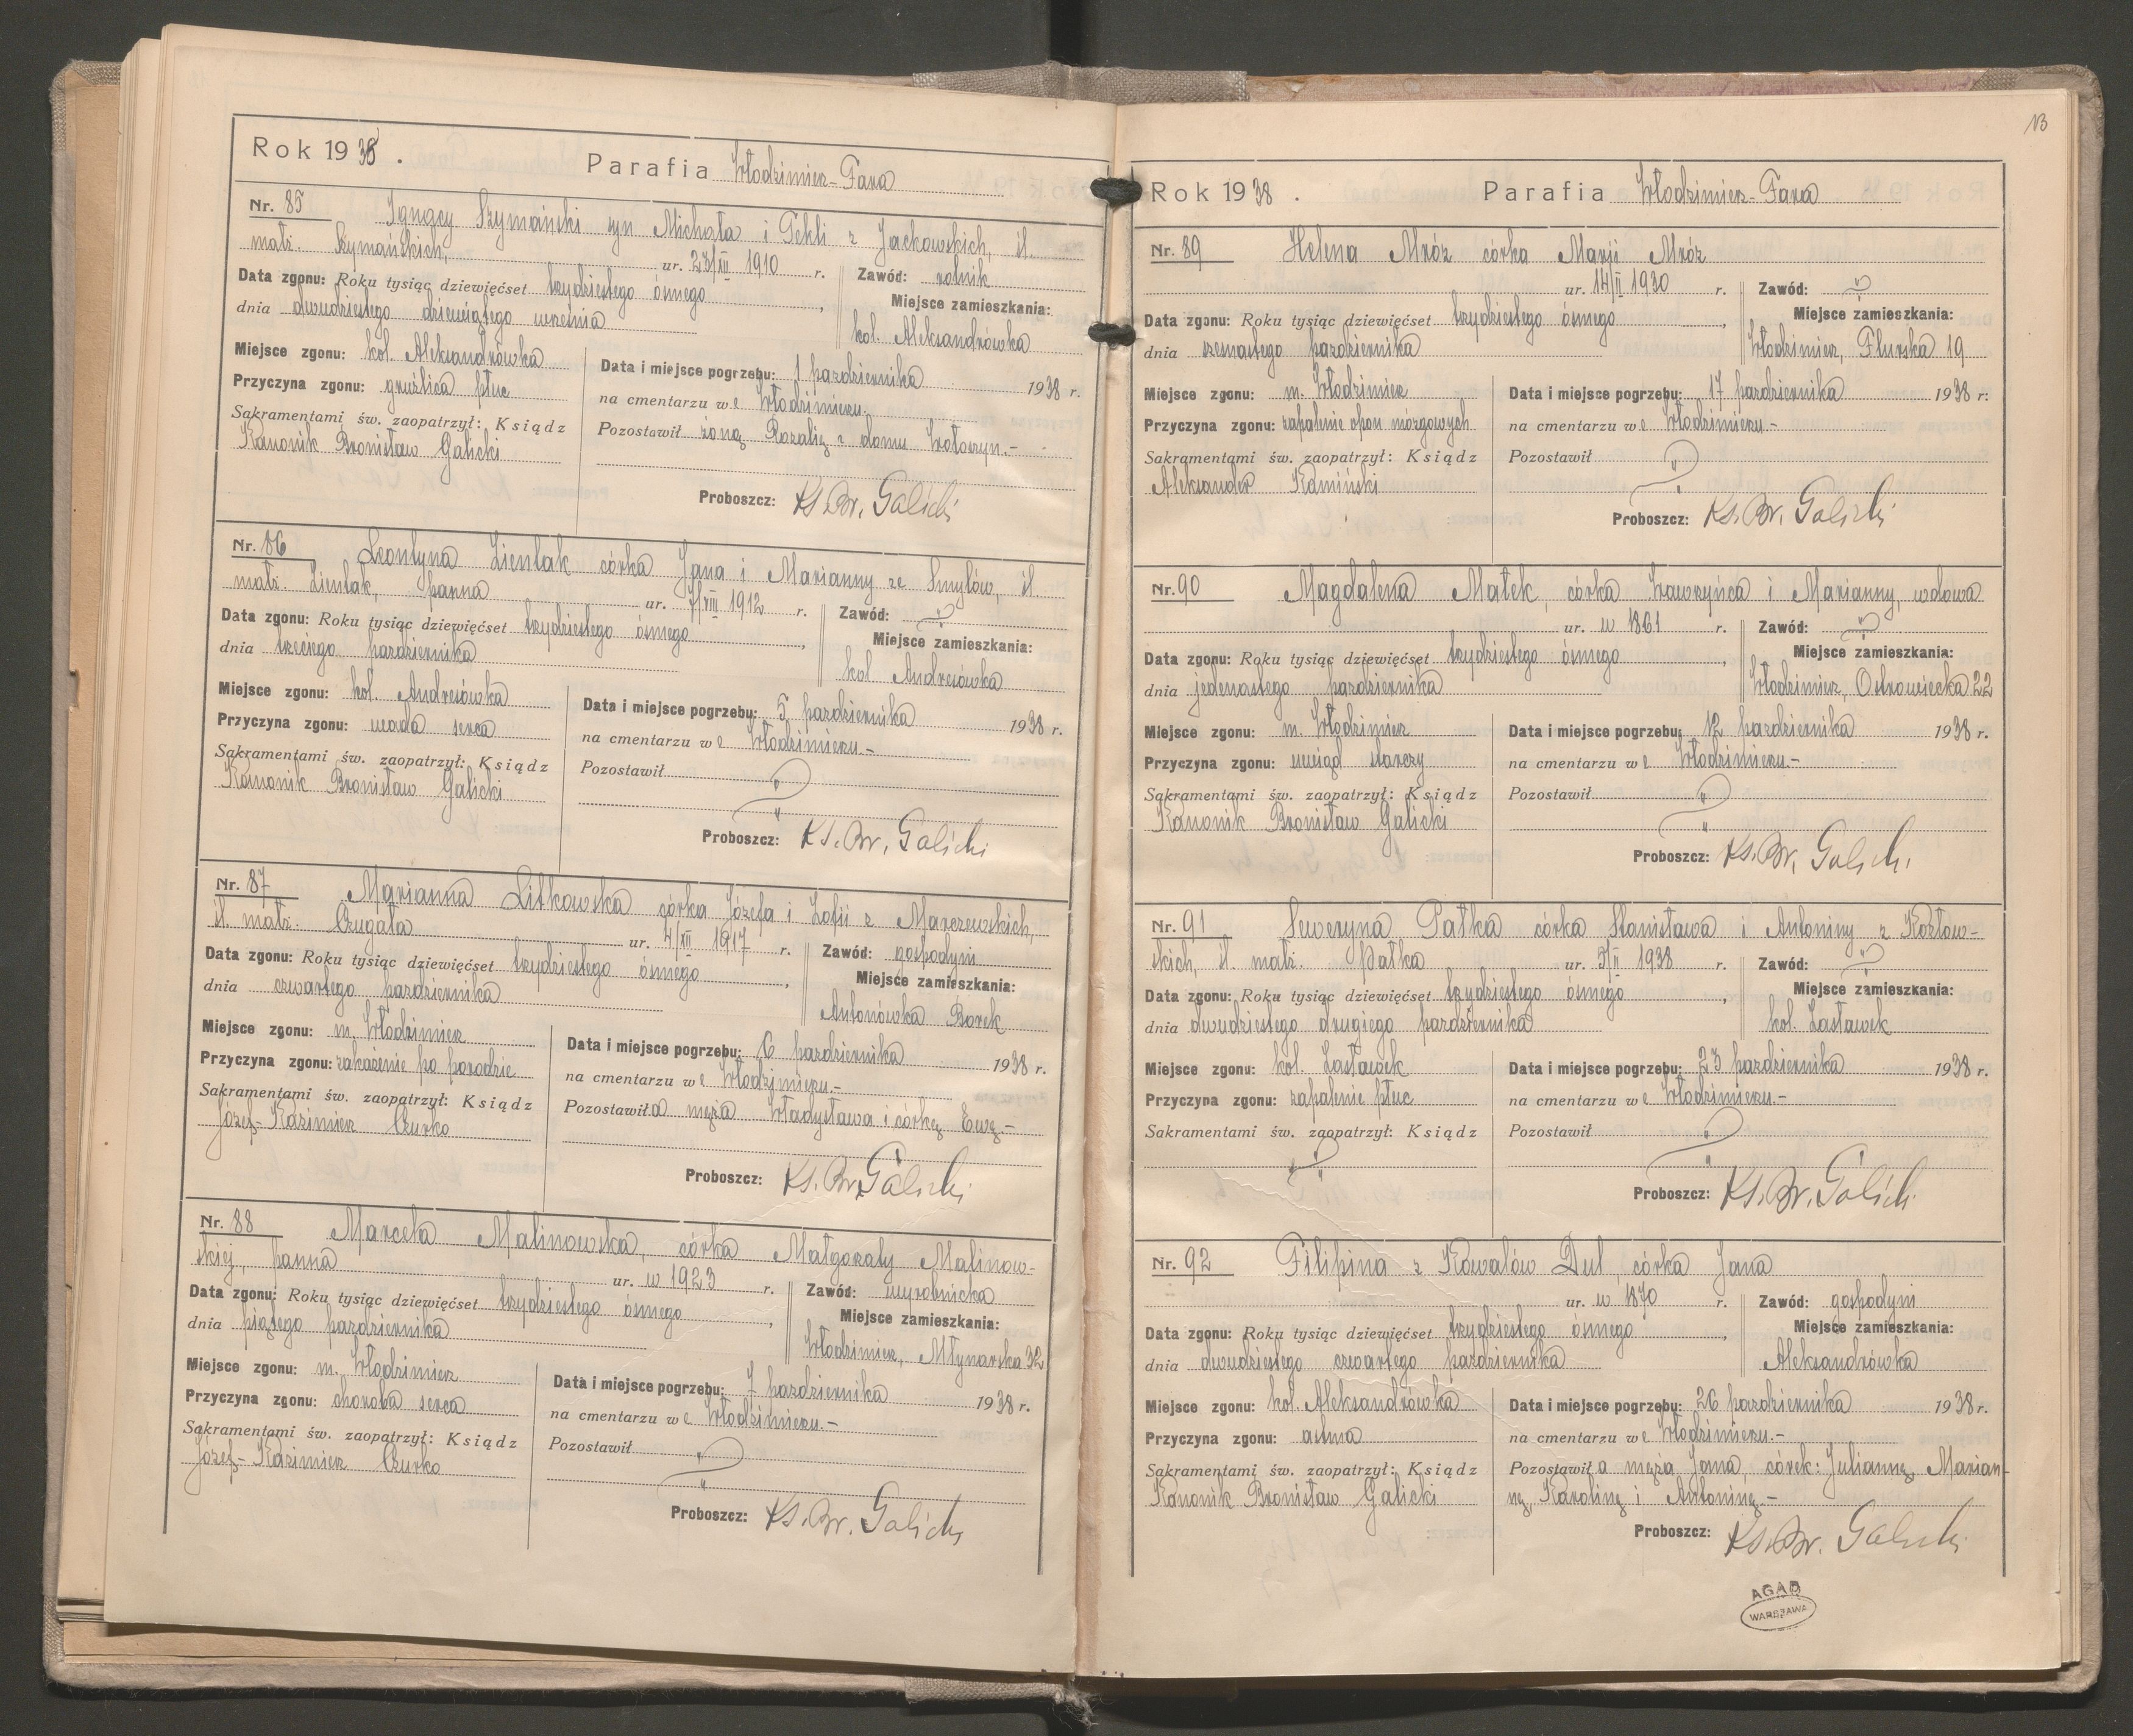 Rok 1938.
Parafia Włodzimierz-Fara
Nr. 85 Ignacy Szymański syn Michała i Tekli z Jackowskich, śl.
małż. Szymańskich, ur. 23/XII 1910 r.
Zawód: rolnik
Data zgonu: Roku tysiąc dziewięćset trzydziestego ósmego,
dnia dwudziestego dziewiątego września
Miejsce zamieszkania:
kol. Aleksandrówka
Miejsce zgonu: kol. Aleksandrówka
Przyczyna zgonu: gruźlica płuc
Sakramentami św. zaopatrzył: Ksiądz
Kanonik Bronisław Galicki
Data i miejsce pogrzebu: 1 października 1938 r.
na cmentarzu we Włodzimierzu.
Pozostawił żonę Rozalię z domu Wołoszyn.-
Proboszcz: Ks. Br. Galicki
Nr. 86 Leontyna Zientak córka Jana i Marianny ze Smyłów, śl.
małż. Zientak, panna ur. 7/VIII 1912 r.
Zawód:
Data zgonu: Roku tysiąc dziewięćset trzydziestego ósmego,
dnia trzeciego października
Miejsce zamieszkania:
kol. Andresówka
Miejsce zgonu: kol. Andresówka
Przyczyna zgonu: wada serca
Sakramentami św. zaopatrzył: Ksiądz
Kanonik Bronisław Galicki
Data i miejsce pogrzebu: 5 października 1938 r.
na cmentarzu we Włodzimierzu.-
Pozostawił
Proboszcz: Ks. Br. Galicki
Nr. 87 Marianna Litkowska córka Józefa i Zofii z Marczewskich,
śl. małż. Czugała ur. 4/XII 1917 r.
Zawód: gospodyni
Data zgonu: Roku tysiąc dziewięćset trzydziestego ósmego,
dnia czwartego października
Miejsce zamieszkania:
Antonówka Borek
Miejsce zgonu: m. Włodzimierz
Przyczyna zgonu: zakażenie po porodzie
Sakramentami św. zaopatrzył: Ksiądz
Józef-Kazimierz Czurko
Data i miejsce pogrzebu: 6 października 1938 r.
na cmentarzu we Włodzimierzu.-
Pozostawiła męża Władysława i córkę Ewę.-
Proboszcz: Ks. Br. Galicki
Nr. 88 Marcela Malinowska, córka Małgorzaty Malinow-
skiej, panna ur. w 1923 r.
Zawód: wyrobnicka
Data zgonu: Roku tysiąc dziewięćset trzydziestego ósmego,
dnia piątego października
Miejsce zamieszkania:
Włodzimierz, Młynarska 32
Miejsce zgonu: m. Włodzimierz
Przyczyna zgonu: choroba serca
Sakramentami św. zaopatrzył: Ksiądz
Józef-Kazimierz Czurko
Data i miejsce pogrzebu: 7 października 1938 r.
na cmentarzu we Włodzimierzu.-
Pozostawił
Proboszcz: Ks. Br. Galicki
Rok 1938.
Parafia Włodzimierz-Fara
Nr. 89 Helena Mróz córka Marji Mróz
ur. 14/II 1930 r.
Zawód:
Data zgonu: Roku tysiąc dziewięćset trzydziestego ósmego,
dnia października
Miejsce zamieszkania:
Włodzimierz, 19
Miejsce zgonu: m. Włodzimierz
Przyczyna zgonu: zapalenie opon mózgowych
Sakramentami św. zaopatrzył: Ksiądz
Aleksander Kamiński
Data i miejsce pogrzebu: 17 października 1938 r.
na cmentarzu we Włodzimierzu.-
Pozostawił
Proboszcz: Ks. Br. Galicki
Nr. 90 Magdalena Małek, córka Wawrzyńca i Marianny, wdowa
ur. w 1861 r.
Zawód:
Data zgonu: Roku tysiąc dziewięćset trzydziestego ósmego,
dnia jedenastego października
Miejsce zamieszkania:
Włodzimierz, Ostrowiecka 22
Miejsce zgonu: m. Włodzimierz
Przyczyna zgonu: uwiąd starczy
Sakramentami św. zaopatrzył: Ksiądz
Kanonik Bronisław Galicki
Data i miejsce pogrzebu: 12 października 1938 r.
na cmentarzu we Włodzimierzu.-
Pozostawił
Proboszcz: Ks. Br. Galicki
Nr. 91 Seweryna Pałka córka Stanisława i Antoniny z Kozłow-
skich, śl. małż. Pałka ur. 5/II 1938 r.
Zawód:
Data zgonu: Roku tysiąc dziewięćset trzydziestego ósmego,
dnia dwudziestego drugiego października
Miejsce zamieszkania:
kol. Zastawek
Miejsce zgonu: kol. Zastawek
Przyczyna zgonu: zapalenie płuc
Sakramentami św. zaopatrzył: Ksiądz
Data i miejsce pogrzebu: 23 października 1938 r.
na cmentarzu we Włodzimierzu.-
Pozostawił
Proboszcz: Ks. Br. Galicki
Nr. 92 Filipina z Kowalów Dul, córka Jana
ur. w 1870 r.
Zawód: gospodyni
Data zgonu: Roku tysiąc dziewięćset trzydziestego ósmego,
dnia dwudziestego czwartego października
Miejsce zamieszkania:
Aleksandrówka
Miejsce zgonu: kol. Aleksandrówka
Przyczyna zgonu: astma
Sakramentami św. zaopatrzył: Ksiądz
Kanonik Bronisław Galicki
Data i miejsce pogrzebu: 26 października 1938 r.
na cmentarzu we Włodzimierzu.-
Pozostawiła męża Jana, córek: Juliannę, Marian-
nę, Karolinę i Antoninę.-
Proboszcz: Ks. Br. Galicki
AGAD
WARSZAWA